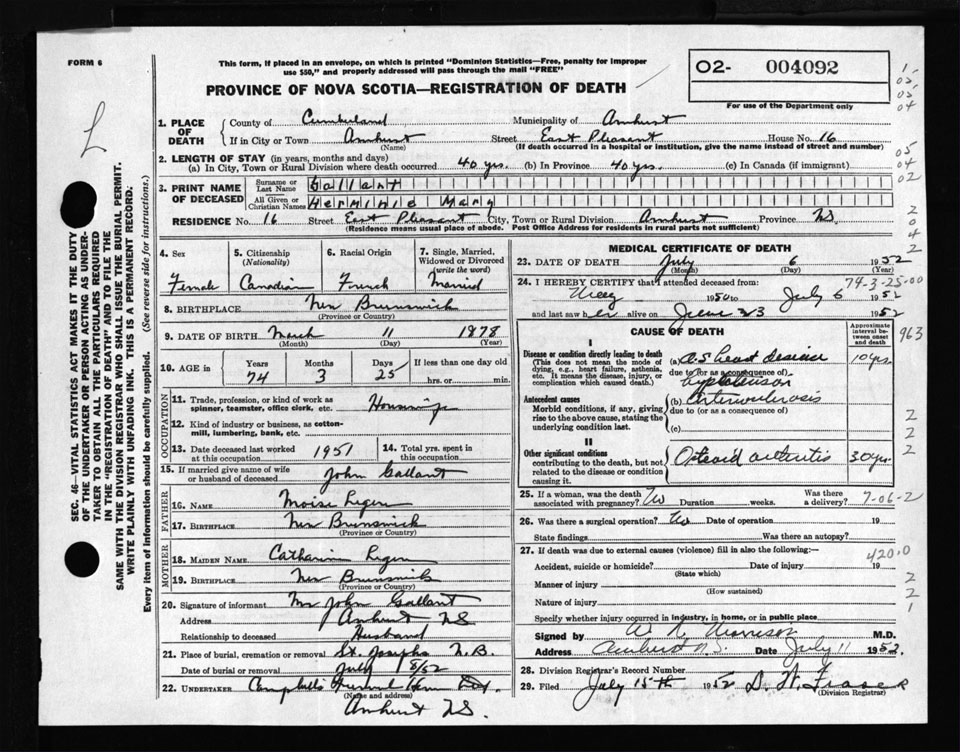 FORM 6
This form, if placed in an envelope, on which is printed "Dominion Statistics—Free, penalty for improper
use $50," and properly addressed will pass through the mail "FREE"
PROVINCE OF NOVA SCOTIA—REGISTRATION OF DEATH
02- 004092
For use of the Department only
L
SEC. 46—VITAL STATISTICS ACT MAKES IT THE DUTY
OF THE UNDERTAKER OR PERSON ACTING AS UNDER-
TAKER TO OBTAIN ALL THE PARTICULARS REQUIRED
IN THE "REGISTRATION OF DEATH" AND TO FILE THE
SAME WITH THE DIVISION REGISTRAR WHO SHALL ISSUE THE BURIAL PERMIT.
WRITE PLAINLY WITH UNFADING INK. THIS IS A PERMANENT RECORD.
Every item of information should be carefully supplied. (See reverse side for instructions.)
1. PLACE OF DEATH
County of Cumberland Municipality of Amherst
If in City or Town Amherst Street East Pleasent House No. 16
(Name) (If death occurred in a hospital or institution, give the name instead of street and number)
2. LENGTH OF STAY (in years, months and days)
(a) In City, Town or Rural Division where death occurred 40 yrs. (b) In Province 40 yrs. (c) In Canada (if immigrant)
3. PRINT NAME OF DECEASED
Surname or Last Name Gallant
All Given or Christian Names Herminie Mary
RESIDENCE No. 16 Street East Pleasant City, Town or Rural Division Amherst Province N.S.
(Residence means usual place of abode. Post Office Address for residents in rural parts not sufficient)
4. Sex
Female
5. Citizenship (Nationality)
Canadian
6. Racial Origin
French
7. Single, Married, Widowed or Divorced (write the word)
Married
8. BIRTHPLACE New Brunswick
(Province or Country)
9. DATE OF BIRTH March 11 1878
(Month) (Day) (Year)
10. AGE in Years Months Days If less than one day old
74 3 25 hrs. or min.
OCCUPATION
11. Trade, profession, or kind of work as
spinner, teamster, office clerk, etc. Housewife
12. Kind of industry or business, as cotton-
mill, lumbering, bank, etc.
13. Date deceased last worked at this occupation 1951
14. Total yrs. spent in this occupation
15. If married give name of wife
or husband of deceased John Gallant
FATHER
16. NAME Moise Leger
17. BIRTHPLACE New Brunswick
(Province or Country)
MOTHER
18. MAIDEN NAME Catharin Leger
19. BIRTHPLACE New Brunswick
(Province or Country)
20. Signature of informant Mr John Gallant
Address Amherst NS
Relationship to deceased Husband
21. Place of burial, cremation or removal St. Josephs N.B.
Date of burial or removal July 8/52
22. UNDERTAKER Campbells Funeral Home
(Name and address)
Amherst NS.
MEDICAL CERTIFICATE OF DEATH
23. DATE OF DEATH July 6 1952
(Month) (Day) (Year)
74-3-25-00
24. I HEREBY CERTIFY that I attended deceased from:
1950 to July 6 1952
and last saw her alive on June 23 1952
CAUSE OF DEATH
Approximate interval between onset and death
I
Disease or condition directly leading to death
(This does not mean the mode of
dying, e.g., heart failure, asthenia,
etc. It means the disease, injury, or
complication which caused death.)
(a) A.S heart disease 10 yrs.
due to (or as a consequence of)
hypertension
Antecedent causes
Morbid conditions, if any, giving
rise to the above cause, stating the
underlying condition last.
(b) Arteriosclerosis
due to (or as a consequence of)
(c)
II
Other significant conditions
contributing to the death, but not
related to the disease or condition
causing it.
Osteoid arthritis 30 yrs.
25. If a woman, was the death
associated with pregnancy? No Duration weeks. Was there a delivery?
7-06-2
26. Was there a surgical operation? No Date of operation 19
State findings Was there an autopsy?
27. If death was due to external causes (violence) fill in also the following:—
420.0
Accident, suicide or homicide? Date of injury 19
(State which)
Manner of injury
(How sustained)
Nature of injury
Specify whether injury occurred in industry, in home, or in public place
Signed by M.D.
Address Amherst N.S. Date July 11 1952.
28. Division Registrar's Record Number
29. Filed July 15th 1952 D. W. Fraser
(Division Registrar)
963